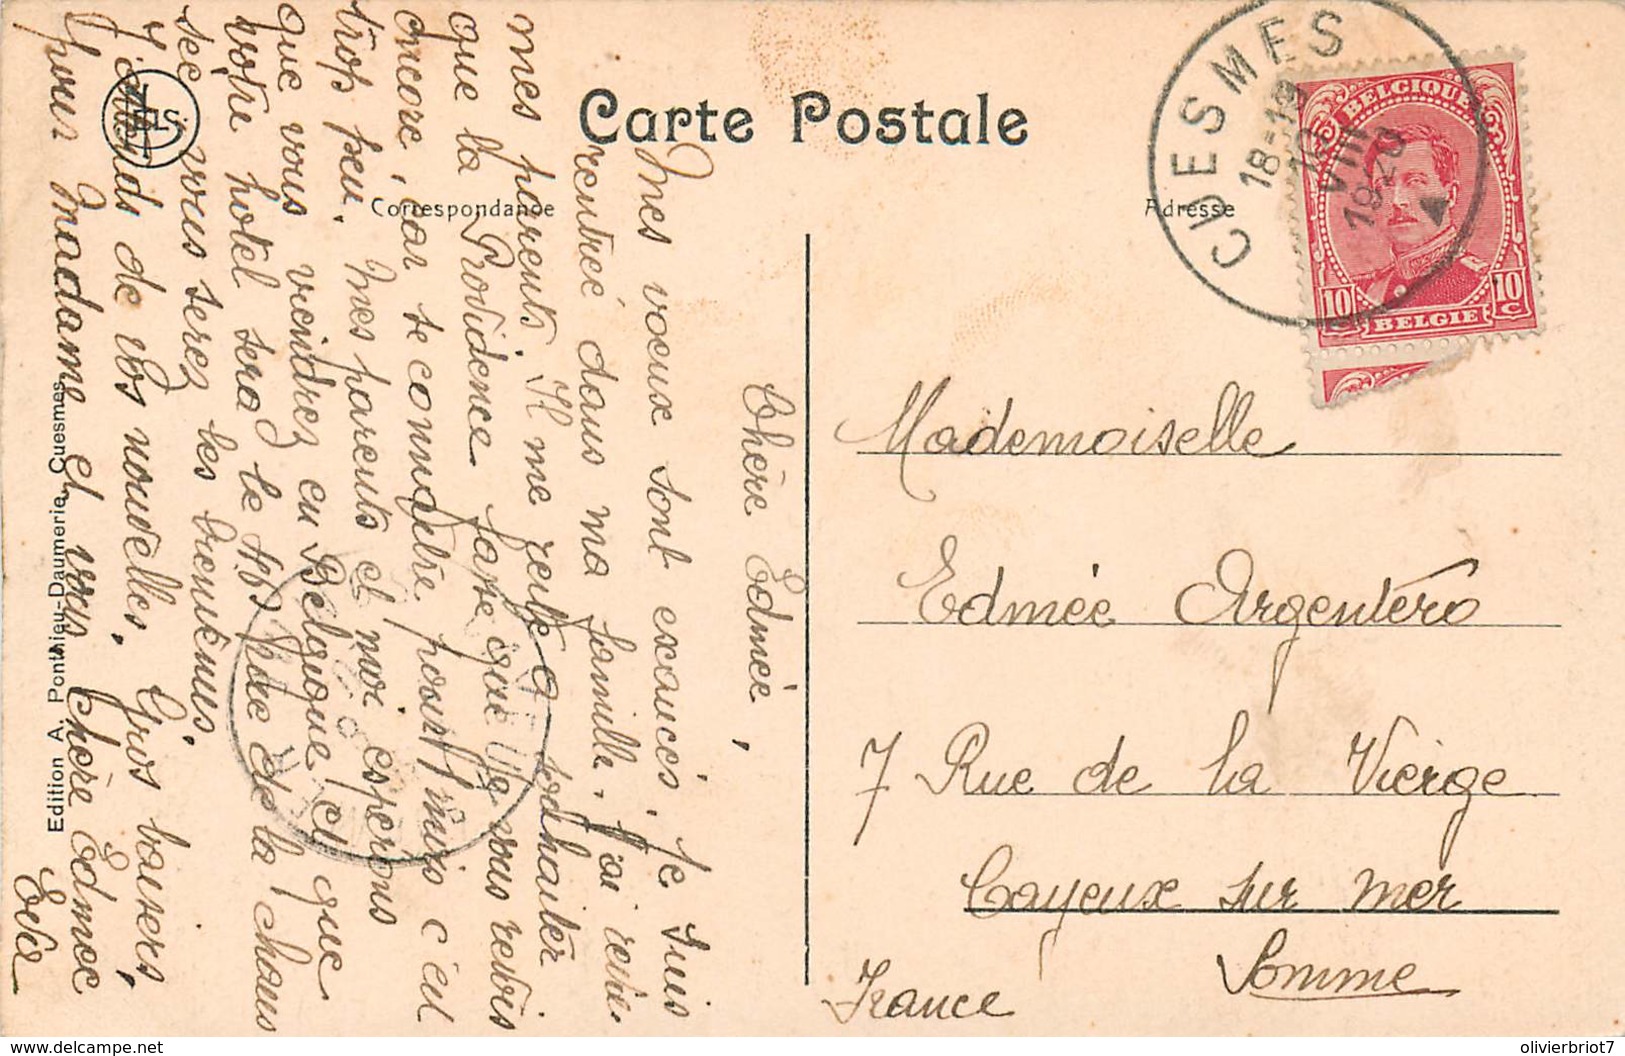 Carte Postale
Correspondance
Adresse
CUESMES
18-19
VIII
1920
BELGIQUE
10 C
10 C
BELGIE
Chère Edmée,
Mes voeux sont exaucés, je suis
rentrée dans ma famille, j'ai revu
mes parents. Il me reste a souhaiter
que la Providence fasse que je vous revois
encore, car se connaître pour mis c'eut
trop peu. Mes parents et moi espérons
que vous viendrez en Belgique et que
votre hotel sera le 48 Place de la chaus
sée vous serez les bienvenus.
J'attends de vos nouvelles. Gros baisers,
pour Madame et vous chère Edmée
Mademoiselle
Edmée Argentero
7 Rue de la Vierge
Cayeux sur mer
Somme
France
Edition A. Ponthieu-Daumerie, Cuesmes
olivierbriot7